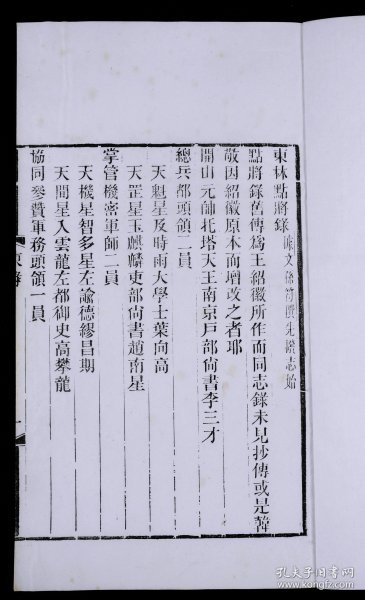 東林點將錄
點將錄舊傳爲王紹徽所作而同志錄未見抄傳或是韓
敬因紹徽原本而增改之者耶
開山元帥托塔天王南京戶部尚書李三才
總兵都頭領二員
天魁星及時雨大學士葉向高
天罡星玉麒麟吏部尚書趙南星
掌管機密軍師二員
天機星智多星左諭德繆昌期
天間星入雲龍左都御史高攀龍
協同參贊軍務頭領一員
孔夫子旧书网
www.kongfz.com